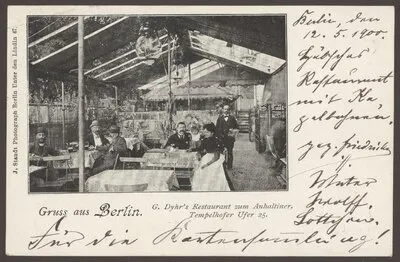 J. Staudt Photograph Berlin Unter den Linden 47.
Gruss aus Berlin.
G. Dyhr's Restaurant zum Anhaltiner,
Tempelhofer Ufer 25.
Berlin, den
12. 5. 1900.
Hübsches
Restaurant
mit Ke,
gelbahnen,
gez. Friedrike
Für die Kartensammlung!